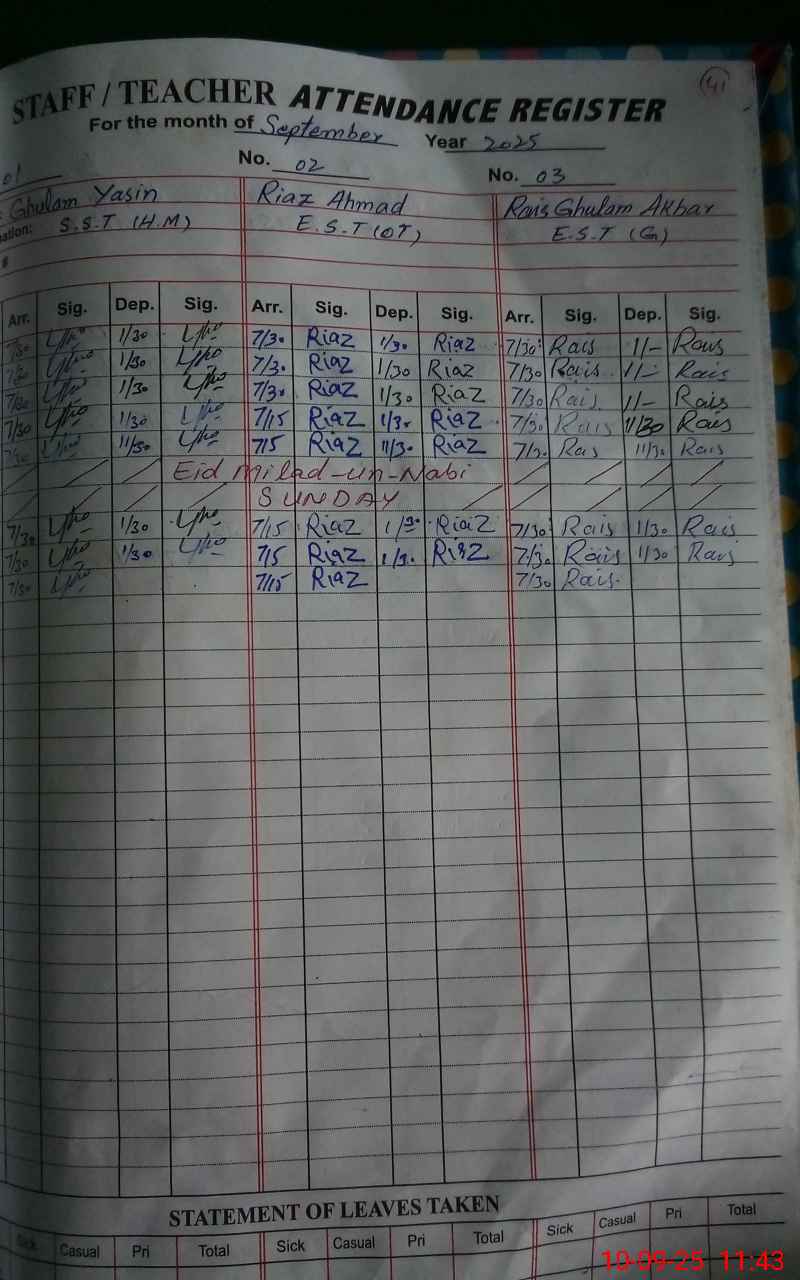 41
STAFF / TEACHER ATTENDANCE REGISTER
For the month of September Year 2025
01 No. 02 No. 03
Ghulam Yasin Riaz Ahmad Rais Ghulam Akbar
ation: S.S.T (H.M) E.S.T (OT) E.S.T (G)
Arr. Sig. Dep. Sig. Arr. Sig. Dep. Sig. Arr. Sig. Dep. Sig.
7/30 1/30 7/30 Riaz 1/30 Riaz 7/30 Rais 11/- Rais
7/30 1/30 7/30 Riaz 1/30 Riaz 7/30 Rais 11/- Rais
7/30 1/30 7/30 Riaz 1/30 Riaz 7/30 Rais 11/- Rais
7/30 1/30 7/15 Riaz 1/30 Riaz 7/30 Rais 11/30 Rais
7/30 11/30 7/5 Riaz 11/30 Riaz 7/30 Ras 11/30 Rais
Eid milad-un-Nabi
SUNDAY
7/30 1/30 7/15 Riaz 1/30 Riaz 7/30 Rais 1/30 Rais
7/30 1/30 7/5 Riaz 1/30 Riaz 7/30 Rais 11/30 Rais
7/30 7/15 Riaz 7/30 Rais.
STATEMENT OF LEAVES TAKEN
Sick Casual Pri Total Sick Casual Pri Total Sick Casual Pri Total
10-09-25 11:43